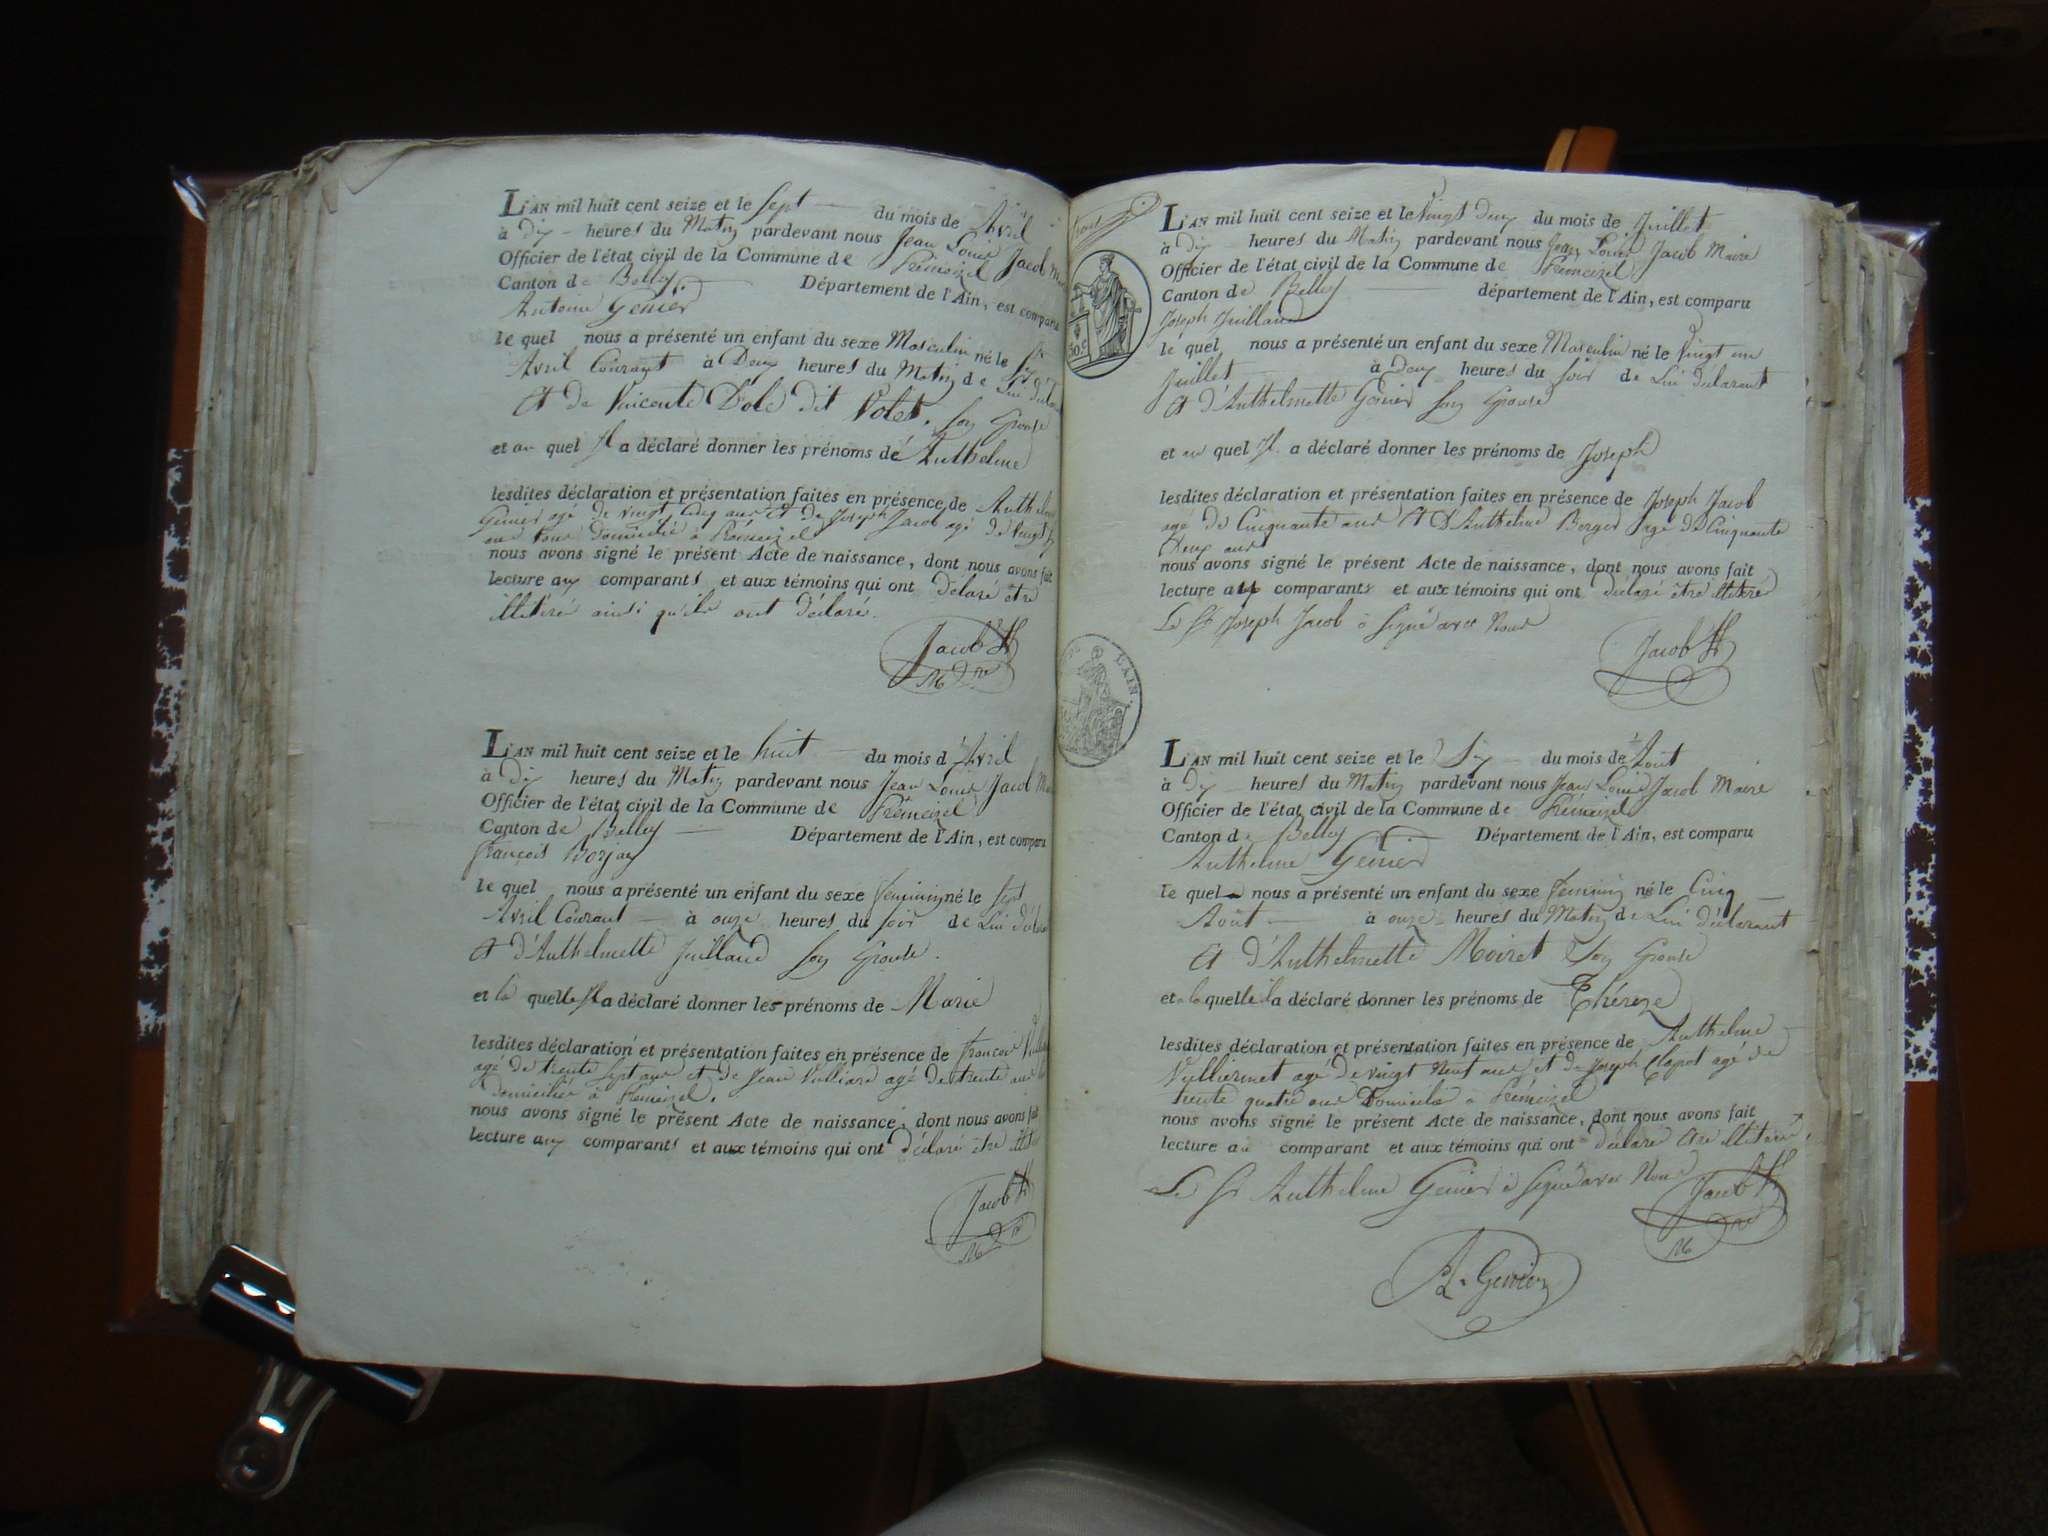 L'AN mil huit cent seize et le Sept du mois de Avril
à dix heures du Matin pardevant nous Jean Louis Jacob
Officier de l'état civil de la Commune de Prémeizel
Canton de Belley. Département de l'Ain, est comparu
Antoine Genier
le quel nous a présenté un enfant du sexe Masculin né le
Avril Courant à Deux heures du Matin de Lui
et de Vincente Dole dit Volet, son Epouse
et au quel Il a déclaré donner les prénoms de Anthelme
lesdites déclaration et présentation faites en présence de
Genier agé de vingt cinq ans et de Joseph Jacob agé de vingt
ans tous domicilié à Prémeizel
nous avons signé le présent Acte de naissance, dont nous avons fait
lecture aux comparants et aux témoins qui ont délaré être
illitéré ainsi qu'ils ont déclaré.
Jacob
L'AN mil huit cent seize et le huit du mois d'Avril
à Dix heures du Matin pardevant nous Jean Louis Jacob
Officier de l'état civil de la Commune de Prémeizel
Canton de Belley Département de l'Ain, est comparu
françois
le quel nous a présenté un enfant du sexe feminin né le sept
Avril Courant à onze heures du soir de Lui
et d'Anthelmette Juilland son Epouse.
et la quelle Il a déclaré donner les prénoms de Marie
lesdites déclaration et présentation faites en présence de françois
agé de trente sept ans et de Jean Vulliard agé de trente ans
domiciliés à Prémeizel.
nous avons signé le présent Acte de naissance, dont nous avons fait
lecture aux comparants et aux témoins qui ont déclaré être
Jacob
L'AN mil huit cent seize et le vingt Deux du mois de Juillet
à dix heures du Matin pardevant nous Jean Louis Jacob Maire
Officier de l'état civil de la Commune de Prémeizel
Canton de Belley département de l'Ain, est comparu
Joseph Juilland
le quel nous a présenté un enfant du sexe Masculin né le vingt un
Juillet à Deux heures du soir de Lui déclarant
et d'Anthelmette Genier son Epouse
et au quel Il a déclaré donner les prénoms de Joseph
lesdites déclaration et présentation faites en présence de Joseph Jacob
agé de Cinquante ans et d'Anthelme Berger agé de Cinquante
Deux ans
nous avons signé le présent Acte de naissance, dont nous avons fait
lecture aux comparants et aux témoins qui ont déclaré être illitéré
Le Sr Joseph Jacob à signé avec Nous
Jacob
30.c
L'AIN.
L'AN mil huit cent seize et le Six du mois de Août
à Dix heures du Matin pardevant nous Jean Louis Jacob Maire
Officier de l'état civil de la Commune de Prémeizel
Canton de Belley Département de l'Ain, est comparu
Anthelme Genier
le quel nous a présenté un enfant du sexe feminin né le Cinq
Août à onze heures du Matin de Lui déclarant
et d'Anthelmette Moiret son Epouse
et a la quelle Il a déclaré donner les prénoms de Thérèze
lesdites déclaration et présentation faites en présence de Anthelme
Vulliermet agé de vingt Neuf ans et de Joseph Clapot agé de
trente quatre ans Domiciliés à Prémeizel
nous avons signé le présent Acte de naissance, dont nous avons fait
lecture au comparant et aux témoins qui ont déclaré être illitéré,
Le Sr Anthelme Genier à signé avec Nous
Jacob
A. Genier